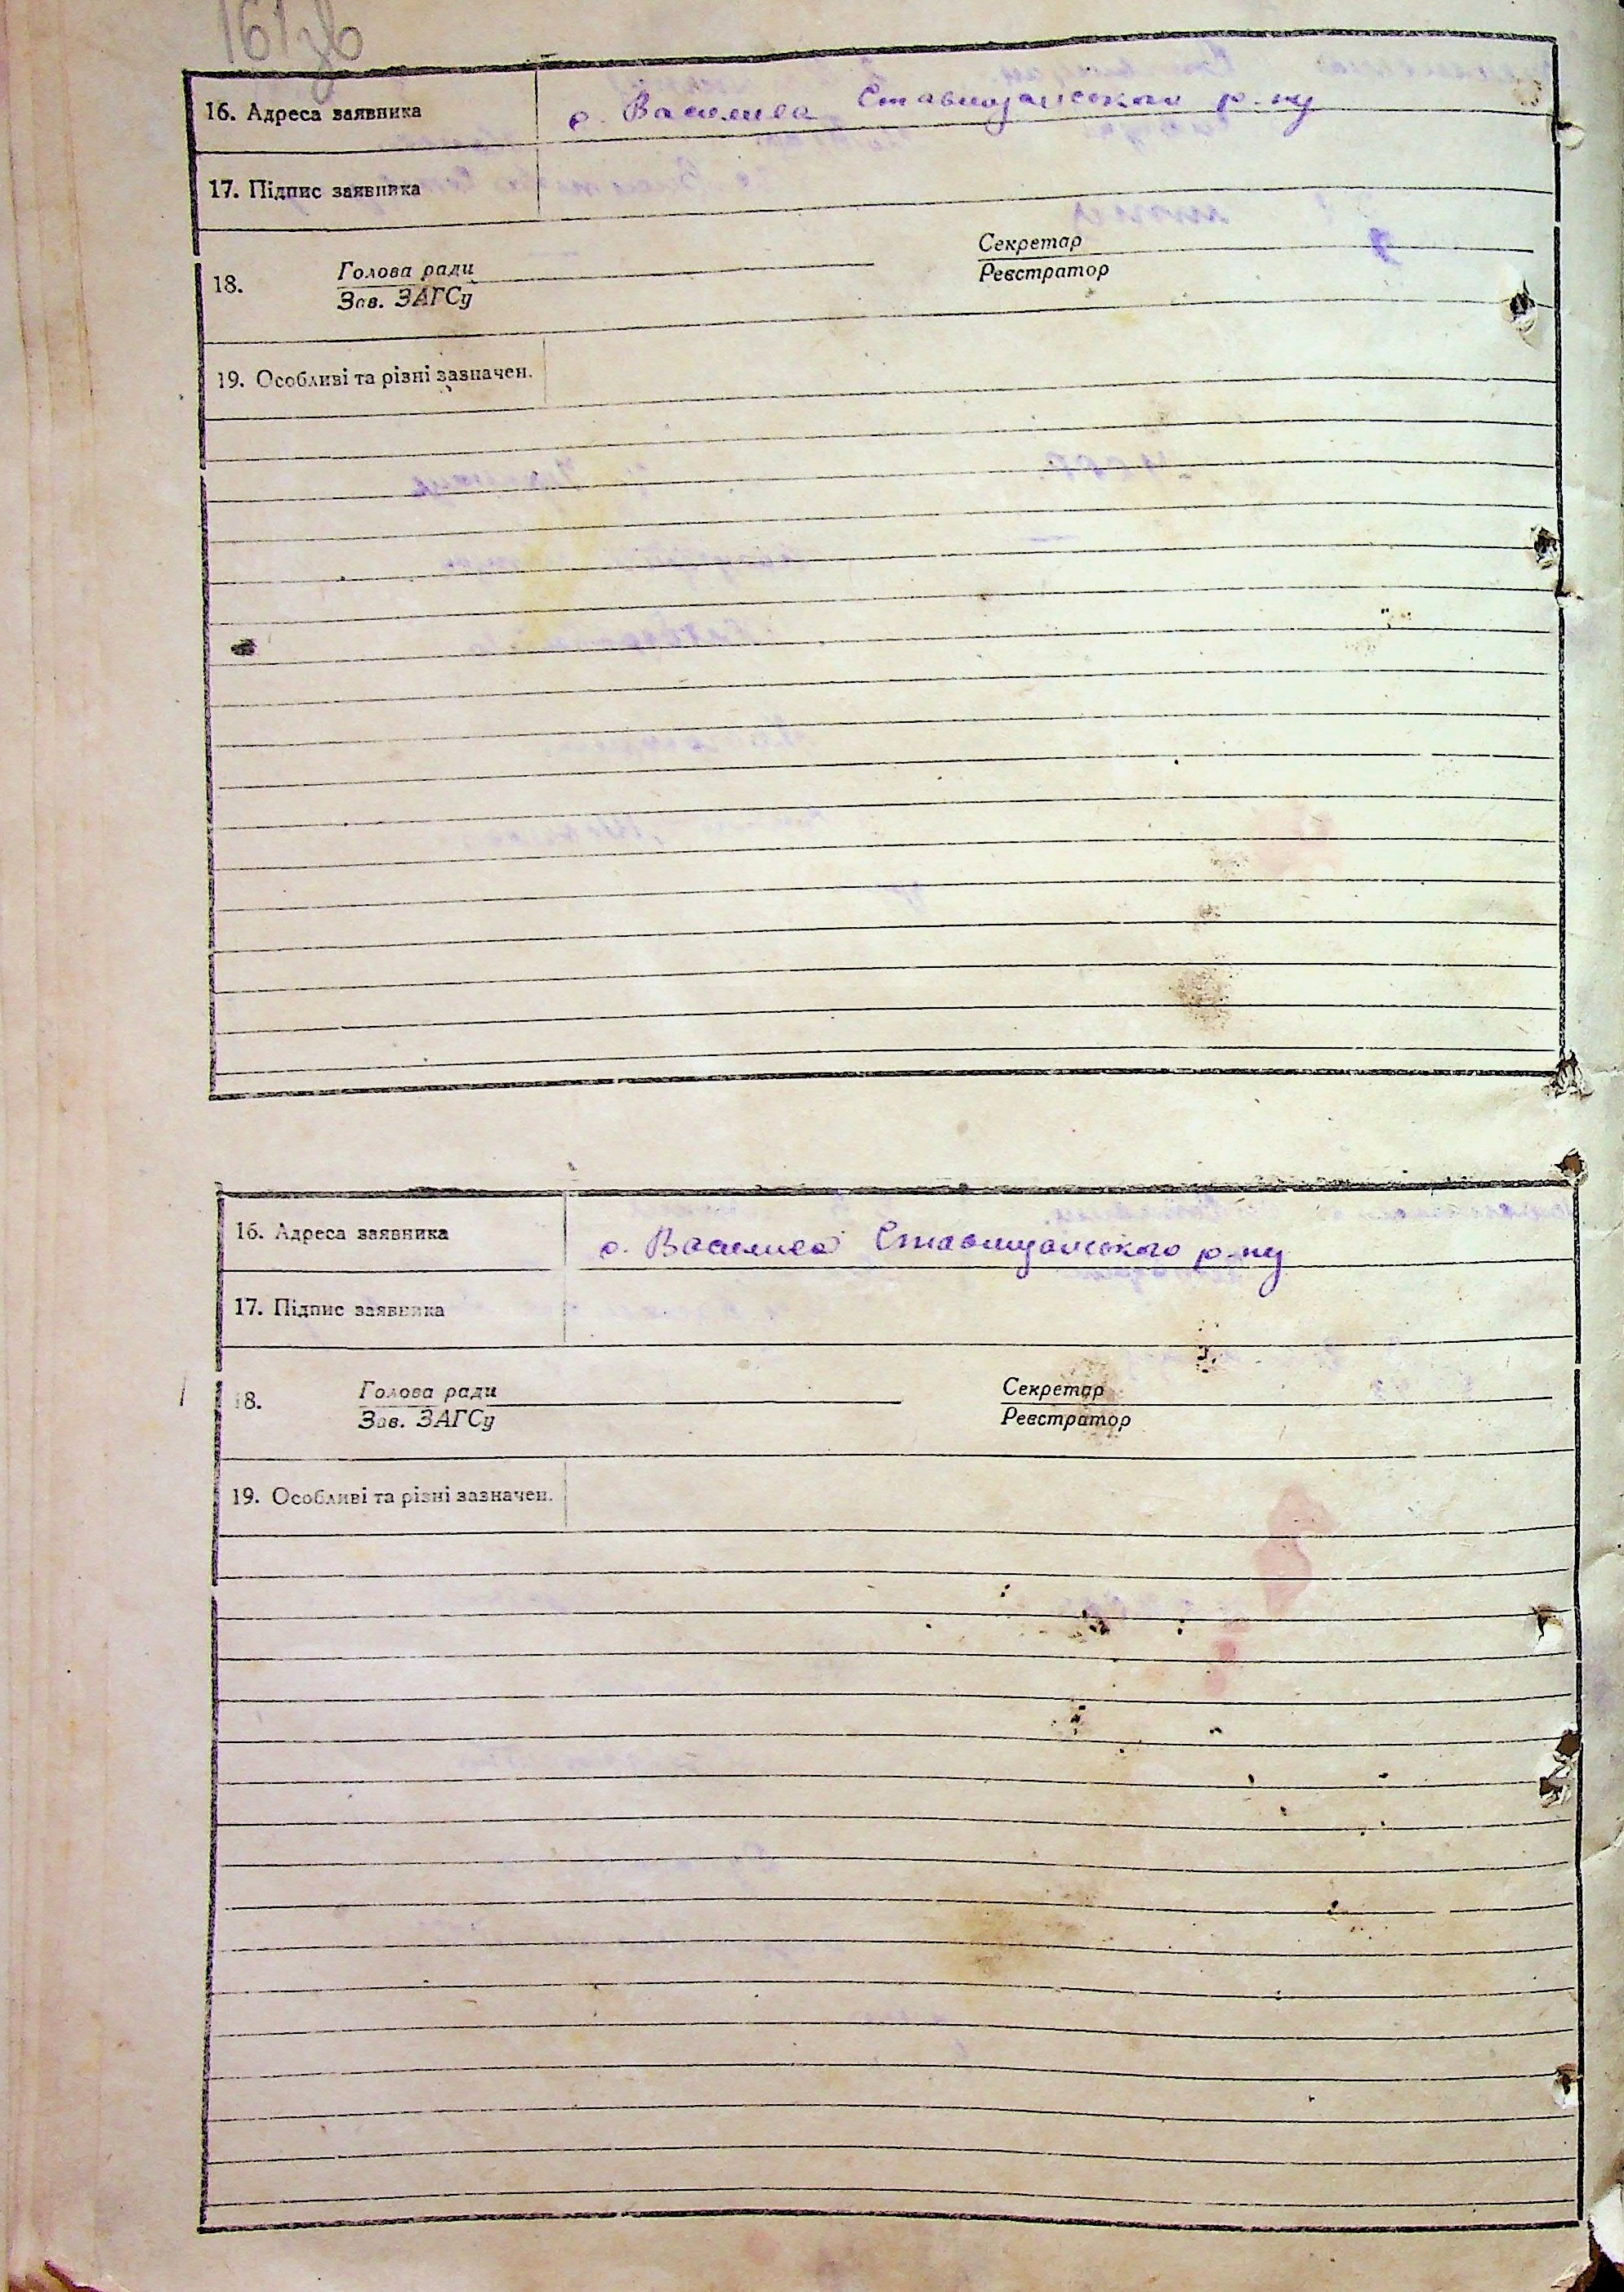 161зв
16. Адреса заявника с. Василиха Ставищанського р-ну
17. Підпис заявника
18. Голова ради
Зав. ЗАГСу
Секретар
Реєстратор
19. Особливі та різні зазначен.
16. Адреса заявника с. Василиха Ставищанського р-ну
17. Підпис заявника
18. Голова ради
Зав. ЗАГСу
Секретар
Реєстратор
19. Особливі та різні зазначен.